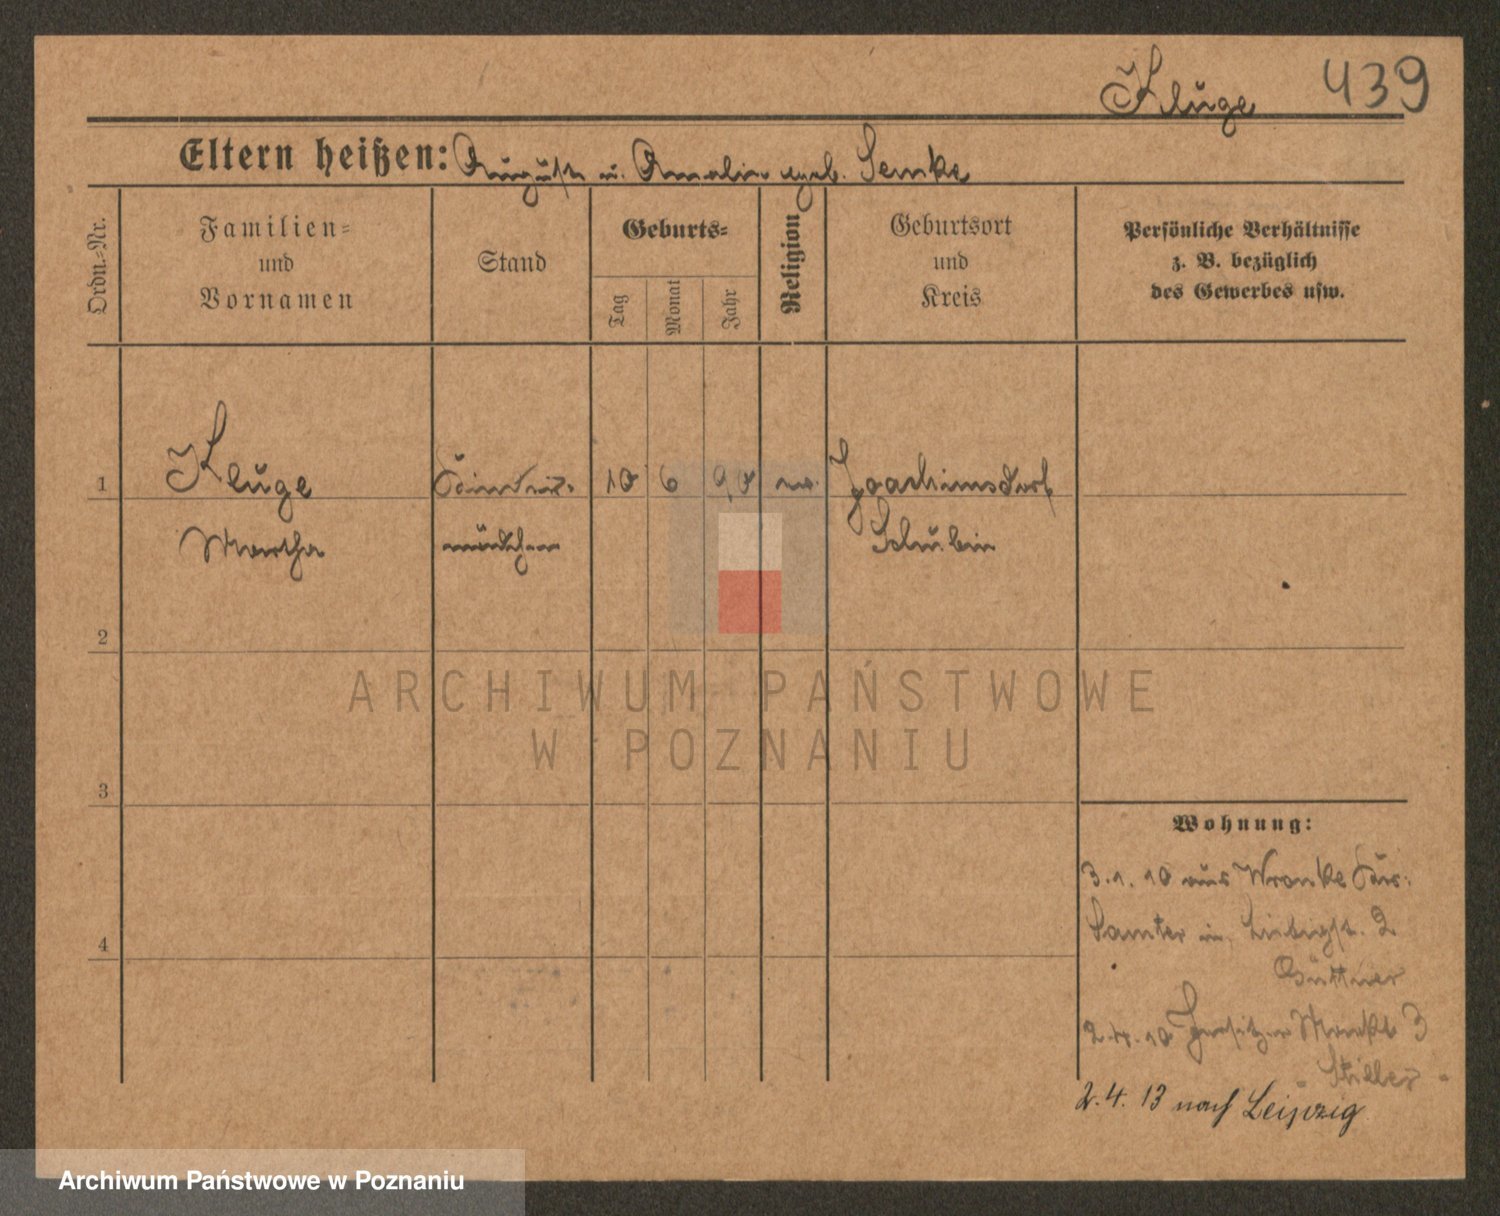 Kluge 439
Eltern heißen: August u. Amalie geb. Semke
Ordn.=Nr.
Familien=
und
Vornamen
Stand
Geburts=
Tag
Monat
Jahr
Religion
Geburtsort
und
Kreis
Persönliche Verhältnisse
z. B. bezüglich
des Gewerbes usw.
1 Kluge 10 6 90 ev. Joachimsdorf
Martha mädchen Schubin
2
3
4
Wohnung:
3.1.10 aus Wronke
Samter in 2
Büttner
2.4.10 Jersitzer Markt 3
Stiller
2.4.13 nach Leipzig
ARCHIWUM PAŃSTWOWE
W POZNANIU
Archiwum Państwowe w Poznaniu